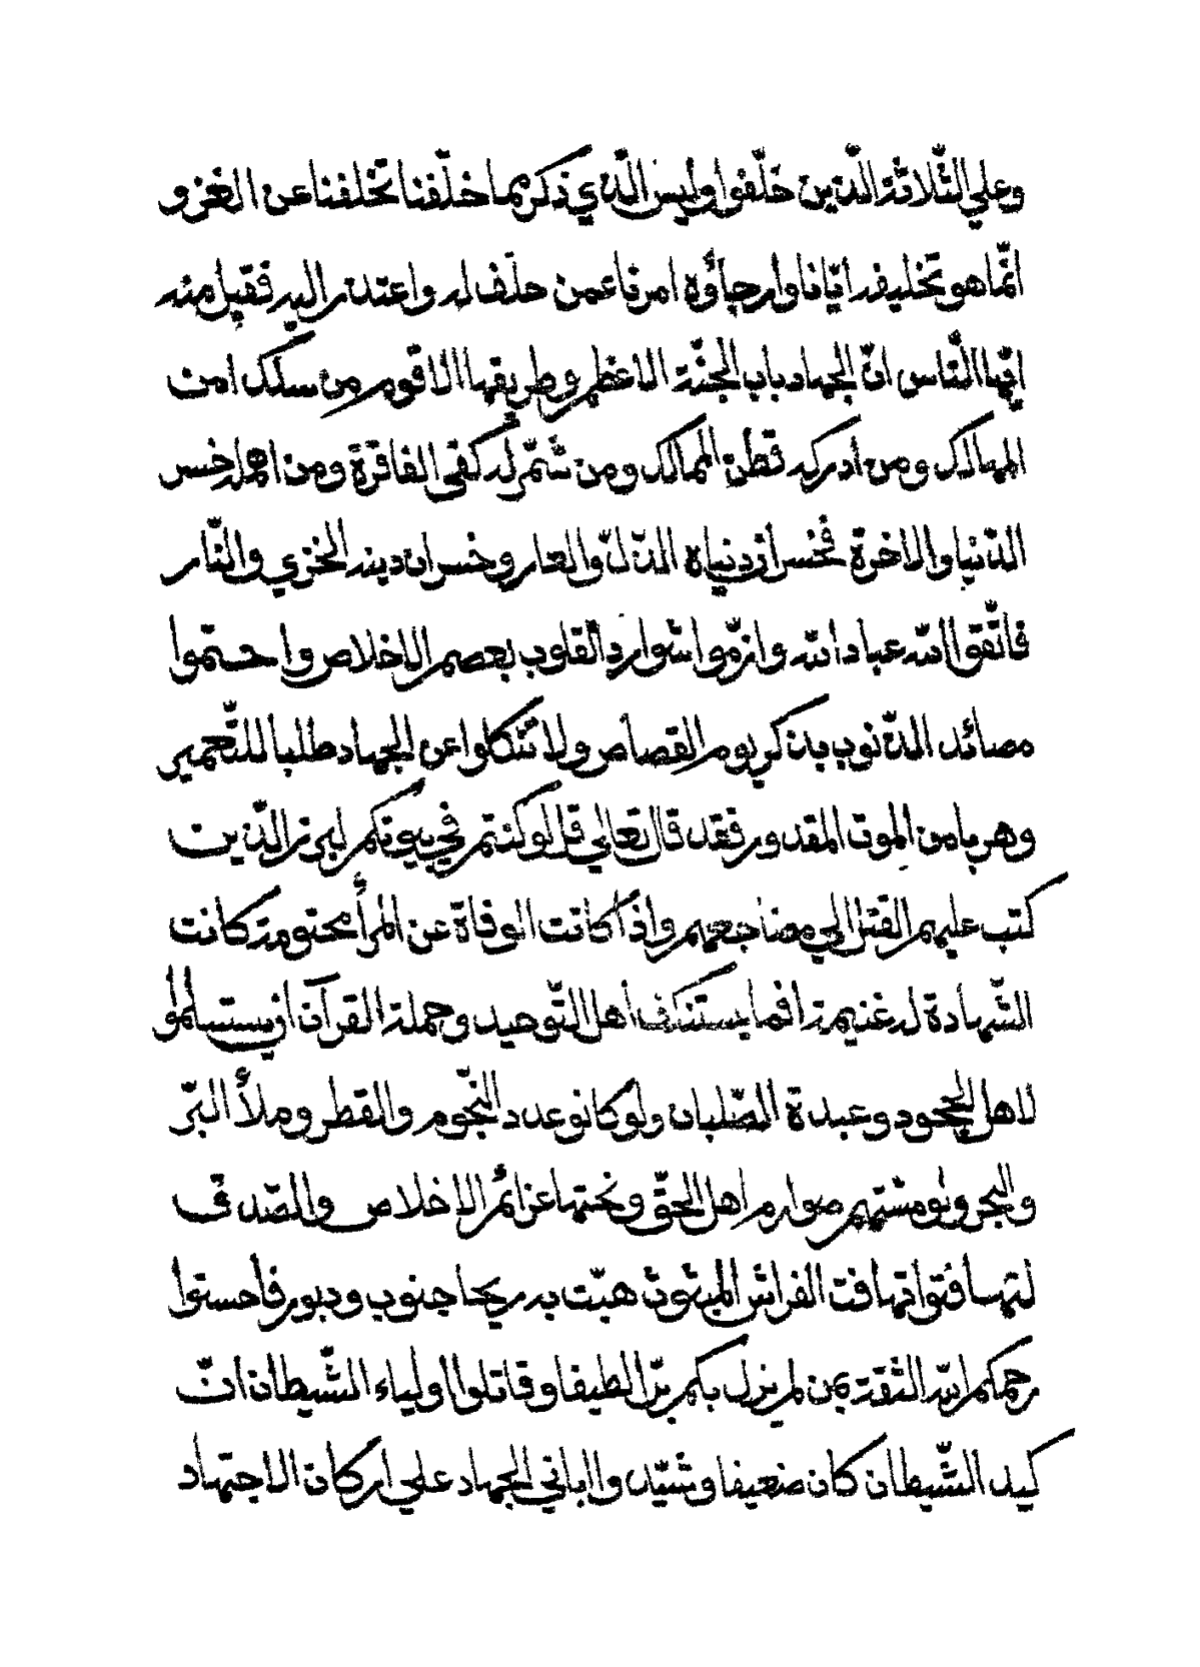 وعلي الثّلاثة الّذين خَلّفوا وليس الّذي ذكر بما خلّفنا تخلفنا عن الغزو
انّما هو تخليفه أيّانا وارجاؤه امرنا عمن حلَف له واعتذر اليه فقبل منه
ايّها النّاس انّ الجهاد باب الجنّة الاعظم وطريقها الاقوم من سلك امن
المهالك ومن أدركه قطن الممالك ومن شمّر له كفى الفاقرة ومن اهمل خسر
الدّنيا والاخرة فخسران دنياه الذّلّ والعار وخسران دينه الخزي والنّار
فاتّقوا الله عباد الله وازمّوا شوارد القلوب بعصم الاخلاص واحتموا
مصائد الذّنوب بذكر يوم القصاص ولا تنكلوا عن الجهاد طلبا للتّعمير
وهربا من الموت المقدور فقد قال تعالي قل لو كنتم في بيوتكم لبرز الّذين
كتب عليهم القتل الي مضاجعهم واذا كانت الوفاة عن المرأ محتومة كانت
الشّهادة له غنيمة افما يستنكف أهل التّوحيد وحملة القرآن ان يستسلموا
لاهل الجحود وعبدة الصّلبان ولو كانو عدد النّجوم والقطر وملأ البرّ
والبحر ولو مشتهم صوارم اهل الحقّ ونحتها عزائم الاخلاص والصّدق
لتهافتوا تهافت الفراش المبثوث هبّت به ريحا جنوب ودبور فأحسنوا
رحمكم الله الثقة بمن لم يزل بكم برّا لطيفا وقاتلوا أولياء الشّيطان انّ
كيد الشّيطان كان ضعيفا وشيّد والباني الجهاد علي اركان الاجتهاد